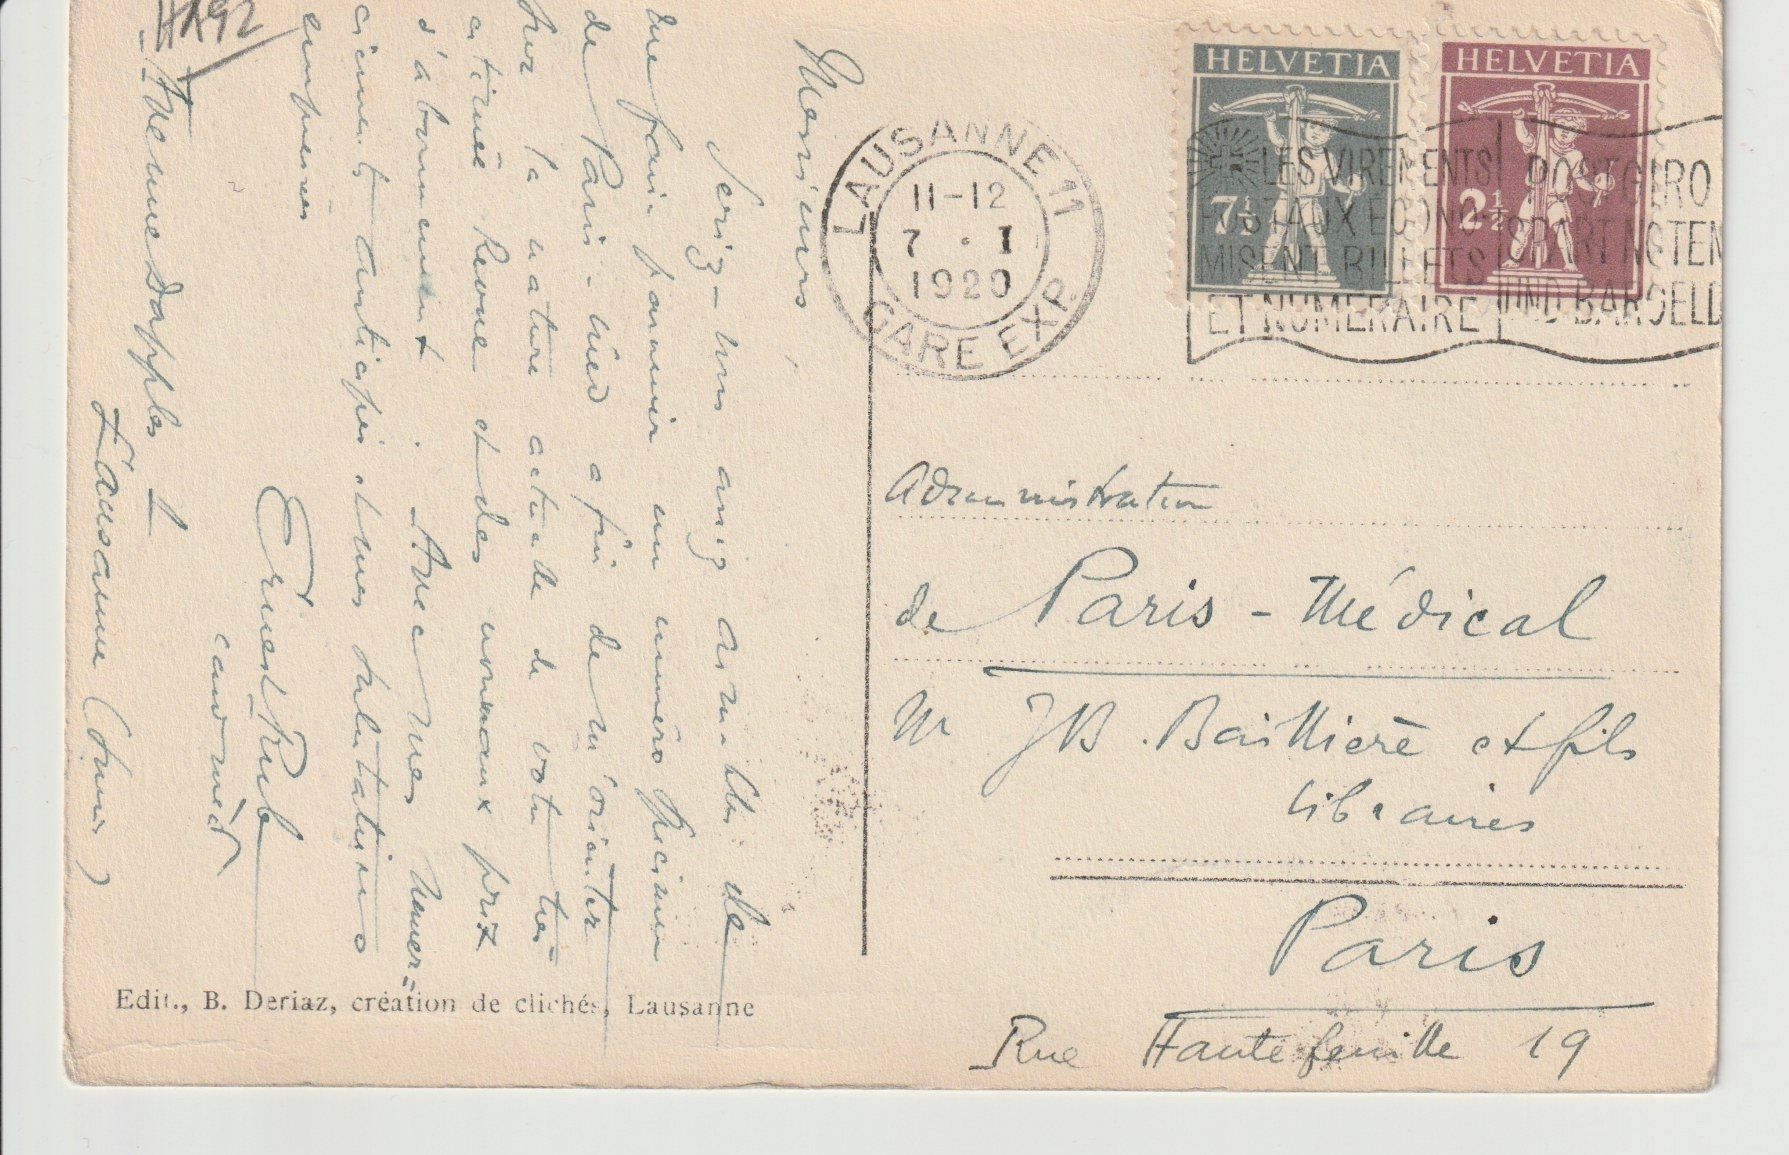 HELVETIA
7½
HELVETIA
2½
LAUSANNE 11
11-12
7 . I
1920
GARE EXP.
LES VIREMENTS
POSTAUX ECONO-
MISENT BILLETS
ET NUMERAIRE
POSTGIRO
SPART NOTEN
UND BARGELD
Administration
de Paris - Médical
Mr JB. Baillière et fils
Libraires
Paris
Rue Hautefeuille 19
Messieurs,
Seriez-vous assez aimable de
me faire parvenir un numéro spécimen
de Paris-Méd afin de m'orienter
sur la nature actuelle de votre très
estimée Revue et des nouveaux prix
d'abonnement. Avec mes remer=
ciements anticipés mes salutations
empressées
Ernest
cand méd
Avenue Dapples
Lausanne (Suisse)
Edit., B. Deriaz, création de clichés, Lausanne